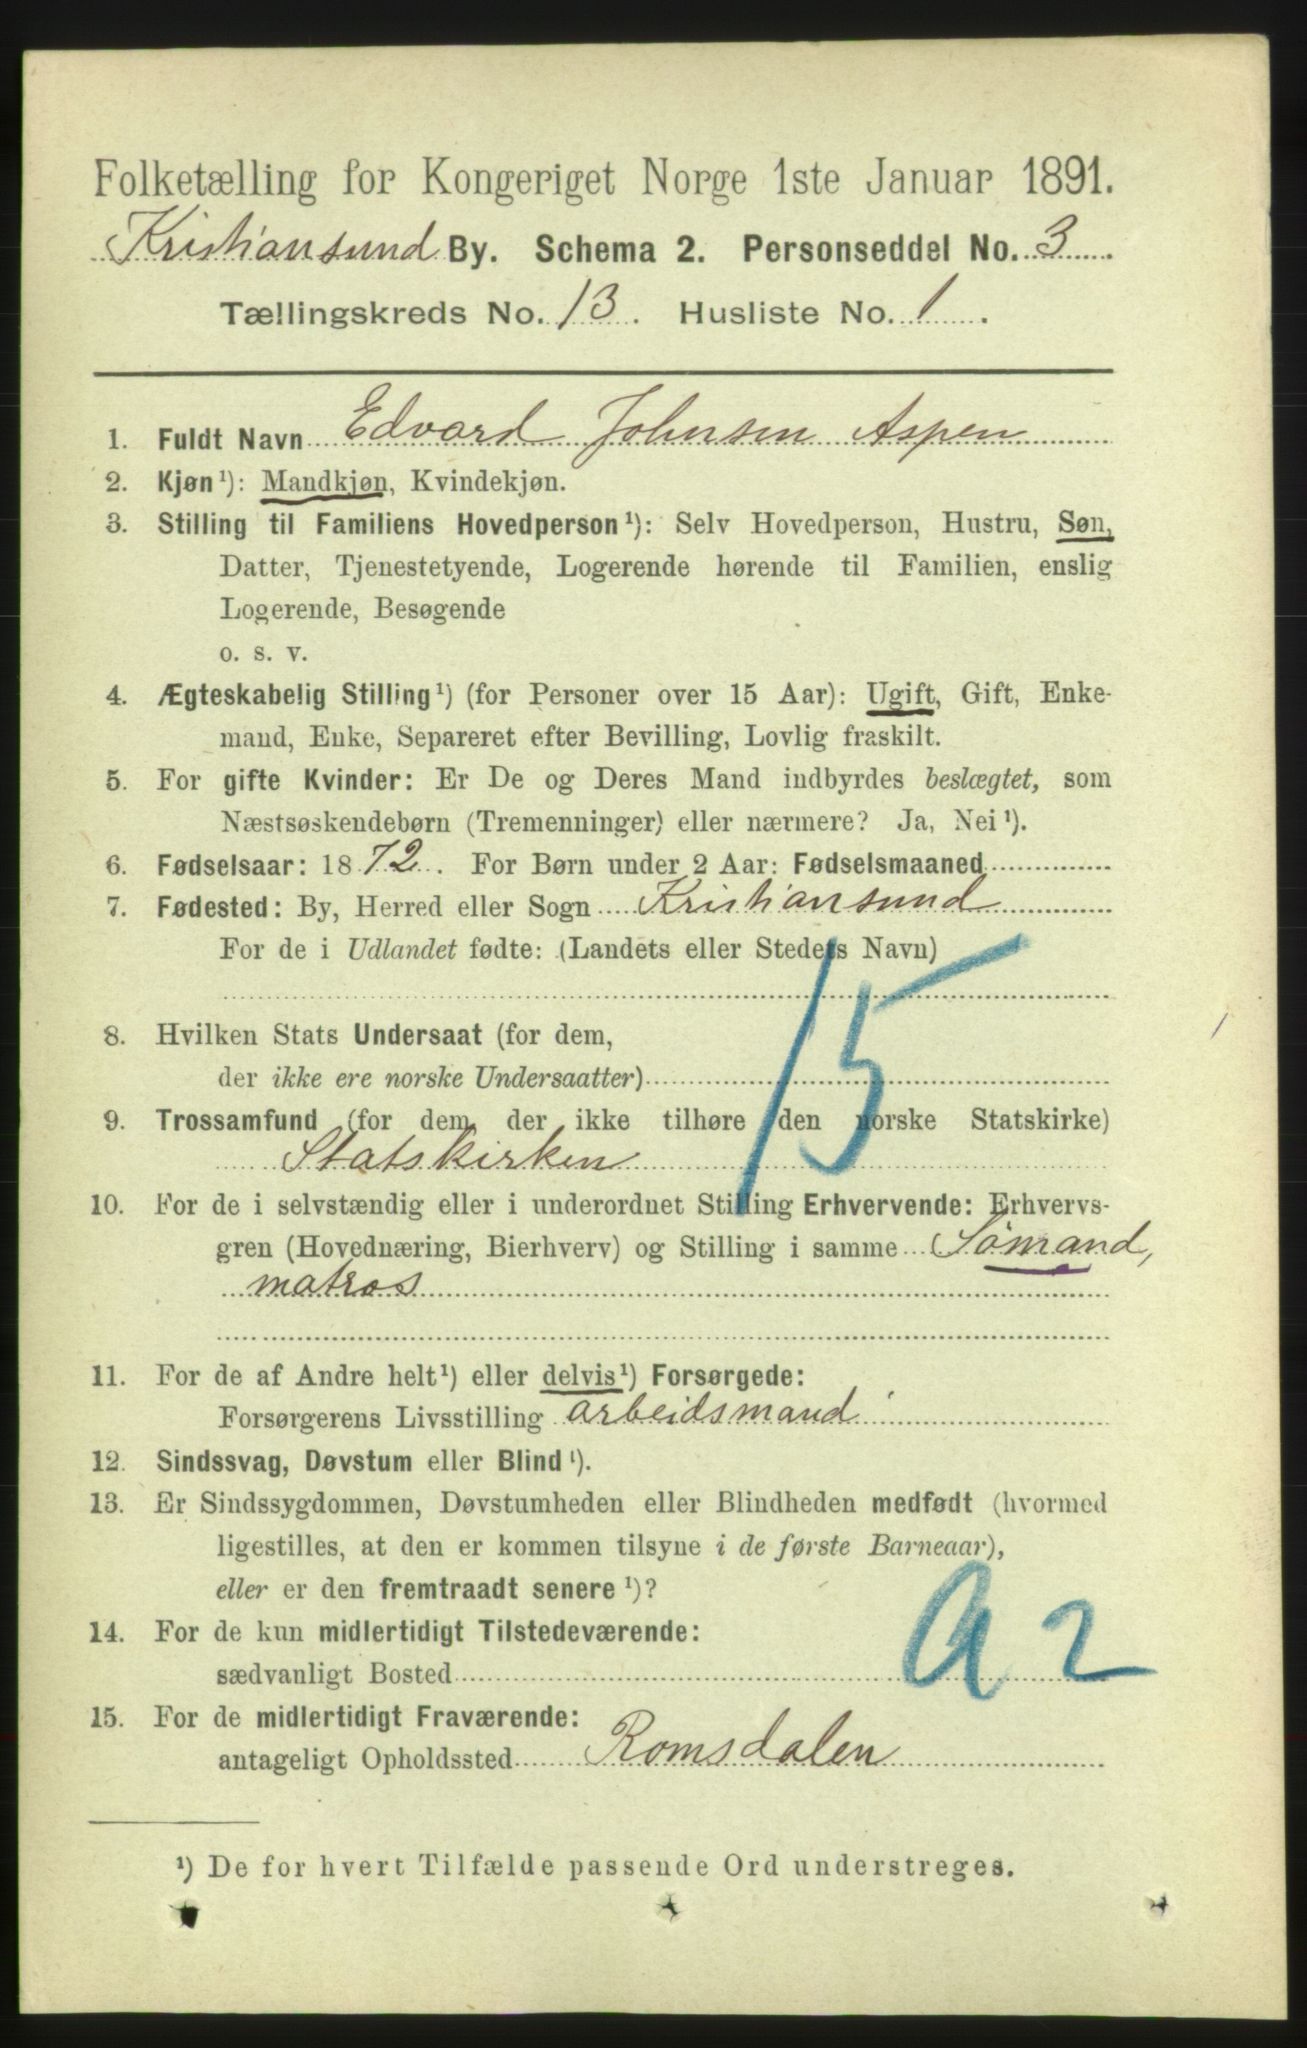 Folketælling for Kongeriget Norge 1ste Januar 1891.
Kristiansund By. Schema 2. Personseddel No. 3
Tællingskreds No. 13. Husliste No. 1.
1. Fuldt Navn Edvard Johnsen Aspen
2. Kjøn¹): Mandkjøn, Kvindekjøn.
3. Stilling til Familiens Hovedperson¹): Selv Hovedperson, Hustru, Søn,
Datter, Tjenestetyende, Logerende hørende til Familien, enslig
Logerende, Besøgende
o. s. v.
4. Ægteskabelig Stilling¹) (for Personer over 15 Aar): Ugift, Gift, Enke-
mand, Enke, Separeret efter Bevilling, Lovlig fraskilt.
5. For gifte Kvinder: Er De og Deres Mand indbyrdes beslægtet, som
Næstsøskendebørn (Tremenninger) eller nærmere? Ja, Nei¹).
6. Fødselsaar: 1872. For Børn under 2 Aar: Fødselsmaaned
7. Fødested: By, Herred eller Sogn Kristiansund
For de i Udlandet fødte: (Landets eller Stedets Navn)
15
8. Hvilken Stats Undersaat (for dem,
der ikke ere norske Undersaatter)
9. Trossamfund (for dem, der ikke tilhøre den norske Statskirke)
Statskirken
10. For de i selvstændig eller i underordnet Stilling Erhvervende: Erhvervs-
gren (Hovednæring, Bierhverv) og Stilling i samme Sømand,
matros
11. For de af Andre helt¹) eller delvis¹) Forsørgede:
Forsørgerens Livsstilling arbeidsmand
12. Sindssvag, Døvstum eller Blind¹).
13. Er Sindssygdommen, Døvstumheden eller Blindheden medfødt (hvormed
ligestilles, at den er kommen tilsyne i de første Barneaar),
eller er den fremtraadt senere¹)?
14. For de kun midlertidigt Tilstedeværende:
sædvanligt Bosted
a 2
15. For de midlertidigt Fraværende:
antageligt Opholdssted Romsdalen
¹) De for hvert Tilfælde passende Ord understreges.